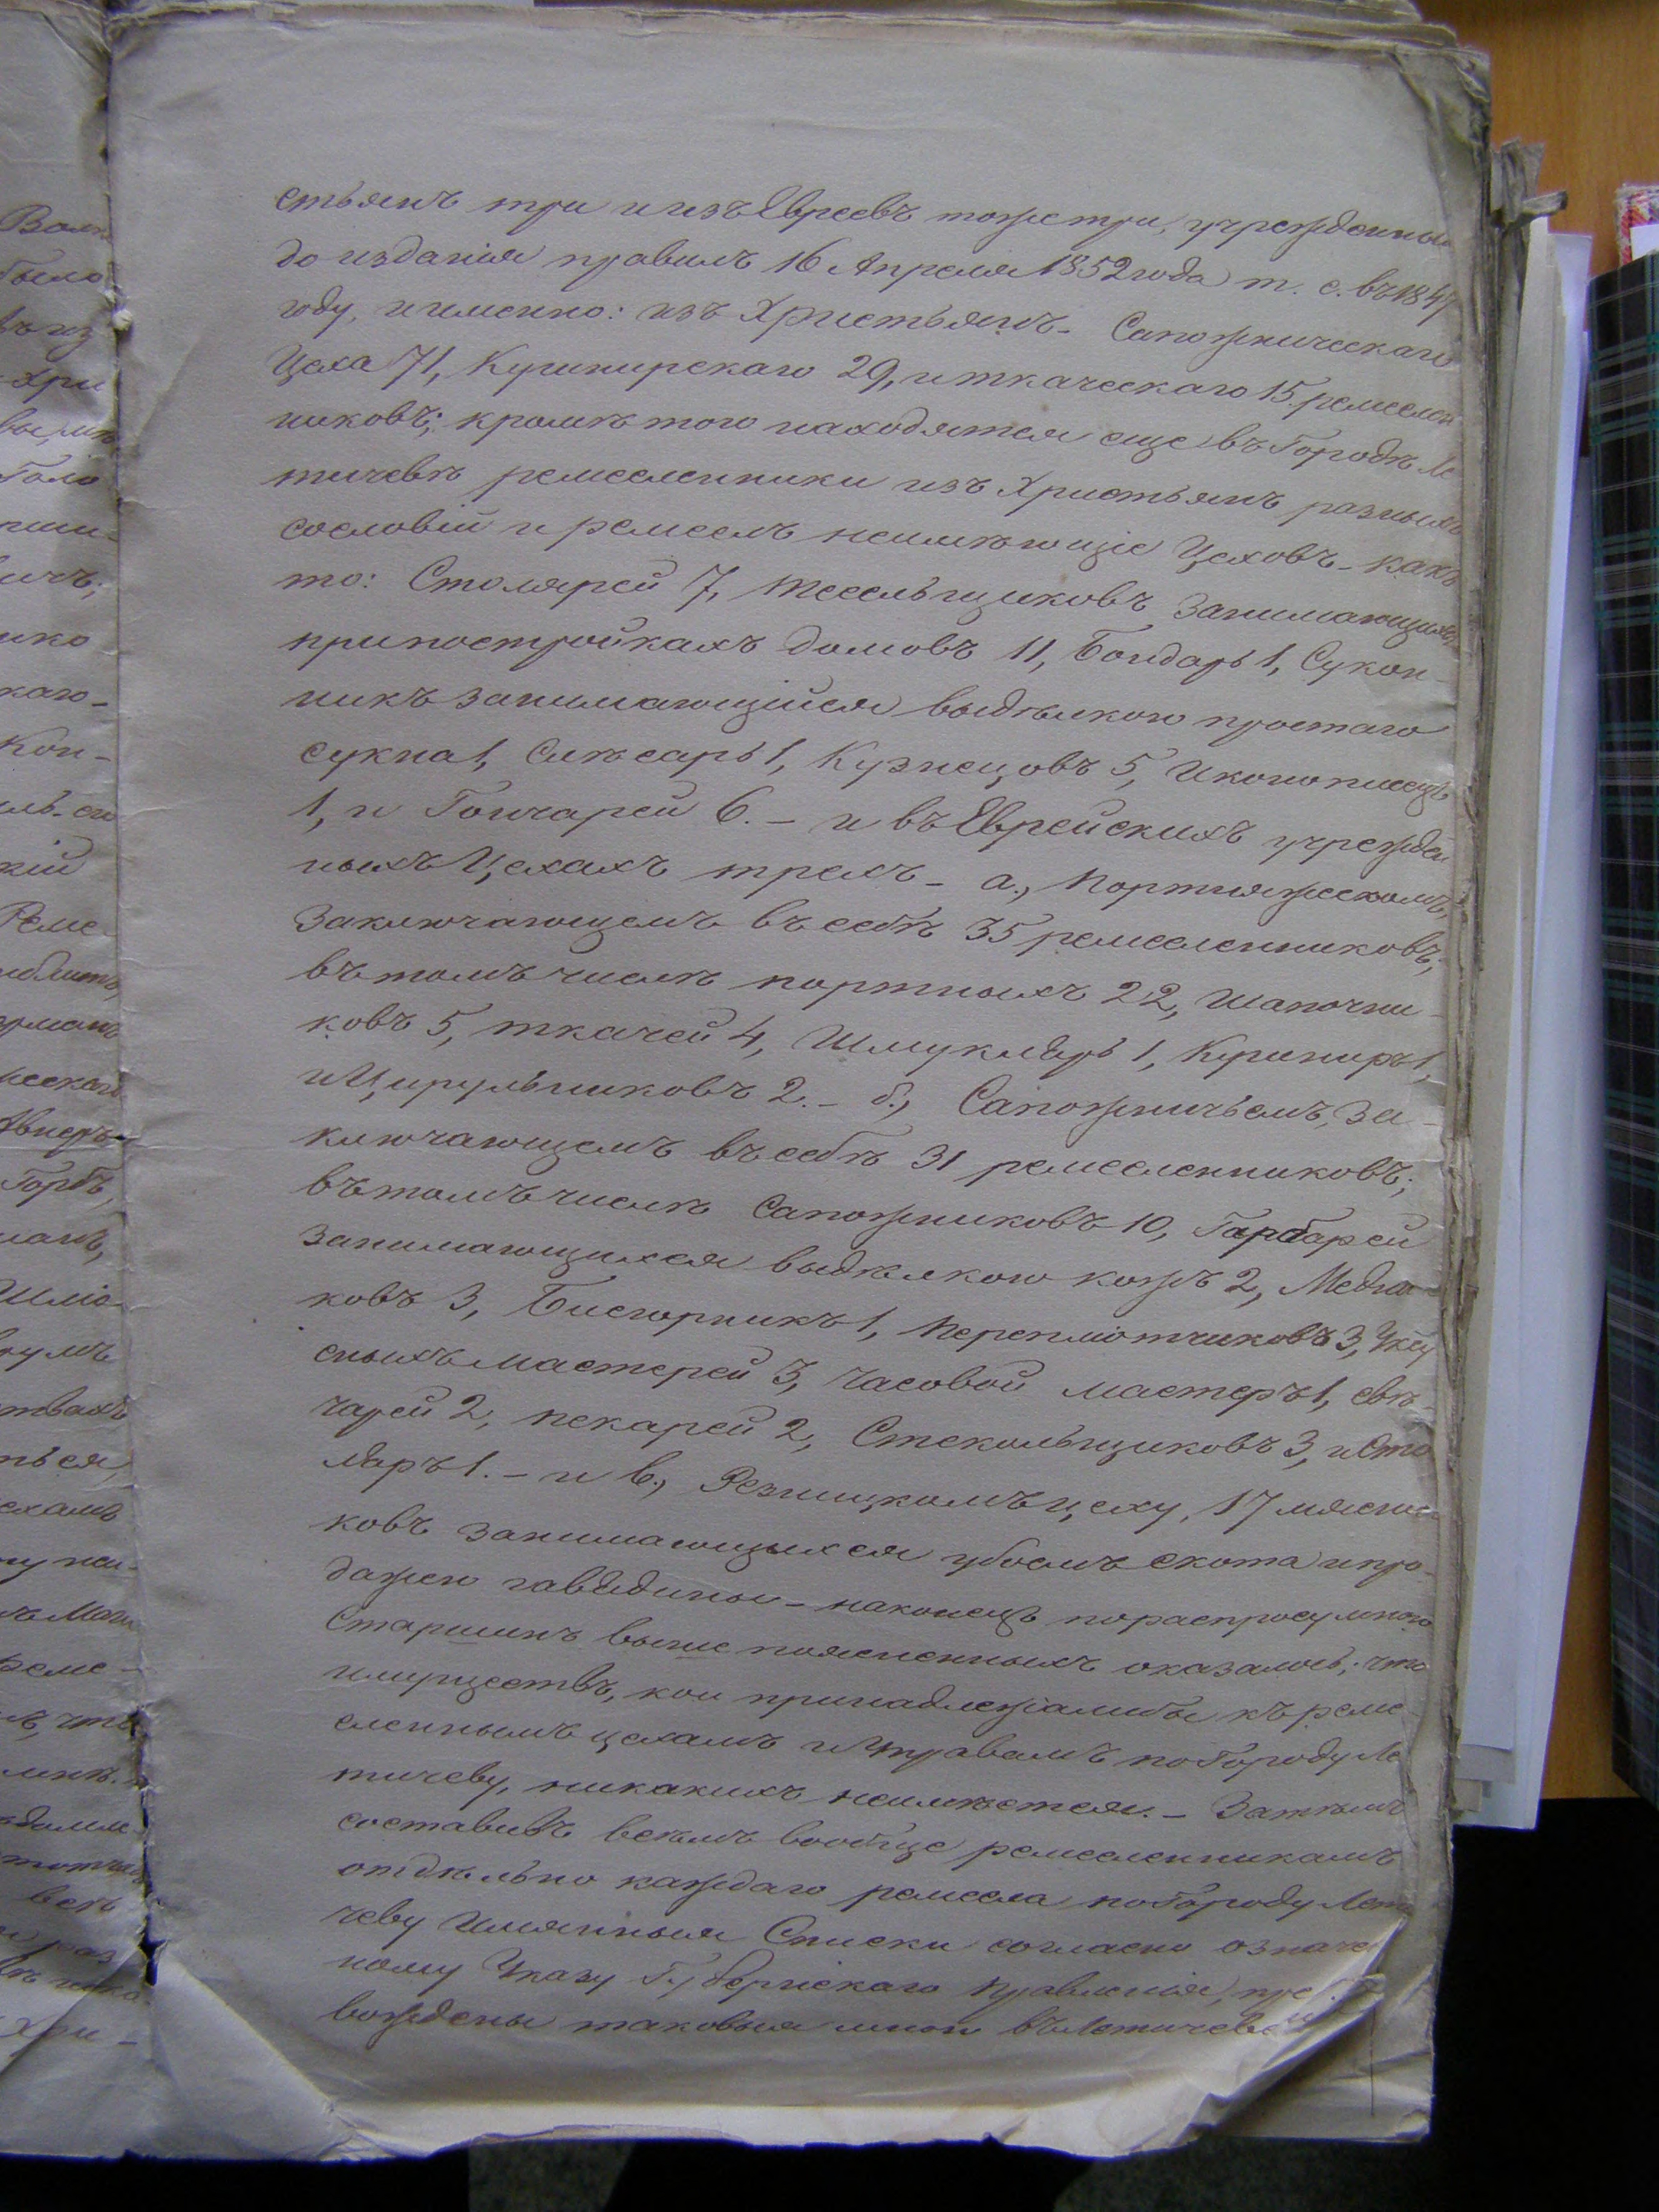 стьянъ три и изъ Евреевъ тожетри, учрежденныи
до изданія правилъ 16 Апреля 1852 года т. е. въ 1847
году, и именно: изъ Христьянъ – Сапожническаго
Цеха 71, Кушнирскаго 29, и ткаческаго 15. ремеслен
никовъ; кромѣ того находятся еще въ Городѣ Ле
тичевѣ ремесленники изъ Христьянъ разныхъ
сословій и ремеслъ неимѣющіе Цеховъ – какъ
то: Столярей 7, тесельщиковъ занимающихъ
припостройкахъ домовъ 11, Бондарь 1, Сукон-
никъ занимающійся выдѣлкою простаго
сукна 1, Слѣсарь 1, Кузнецовъ 5, Иконописецъ
1, и Гончарей 6. – и въ Еврейскихъ учрежден
ныхъ Цехахъ трехъ – а., Портняжескомъ,
заключающемъ въ себѣ 35 ремесленниковъ;
въ томъ числѣ портныхъ 22, Шапочни-
ковъ 5, ткачей 4, Шмуклярь 1, Кушниръ 1,
и Цирульниковъ 2. – б., Сапожничьемъ, за-
ключающемъ въ себѣ 31 ремесленниковъ;
въ томъ числѣ Сапожниковъ 10, Гарбарей
занимающихся выдѣлкою кожъ 2, Медни-
ковъ 3, Бисгорникъ 1, переплотчиковъ 3,
сныхъ мастерей 3, Часовой мастеръ 1, свѣ-
чарей 2, пекарей 2, Стекольщиковъ 3, и Сто
ляръ 1. – и в., Резницкомъ цеху, 17 мясни
ковъ занимающихся убоемъ скота и про-
дажею гавядины – наконецъ пораспросу мною
Старшинъ выше поясненныхъ оказалось, что
имуществъ, кои принадлежалибы къ реме-
сленнымъ цехамъ и Управамъ по Городу Ле
тичеву, никакихъ неимѣется. – Затѣмъ
составивъ всѣмъ вообще ремесленникамъ
отдѣльно каждаго ремесла по Городу Лети
чеву Имянныя Списки согласно означен
ному Указу Губернскаго Правленія, пре
вождены таковыя мною въ Летичевс